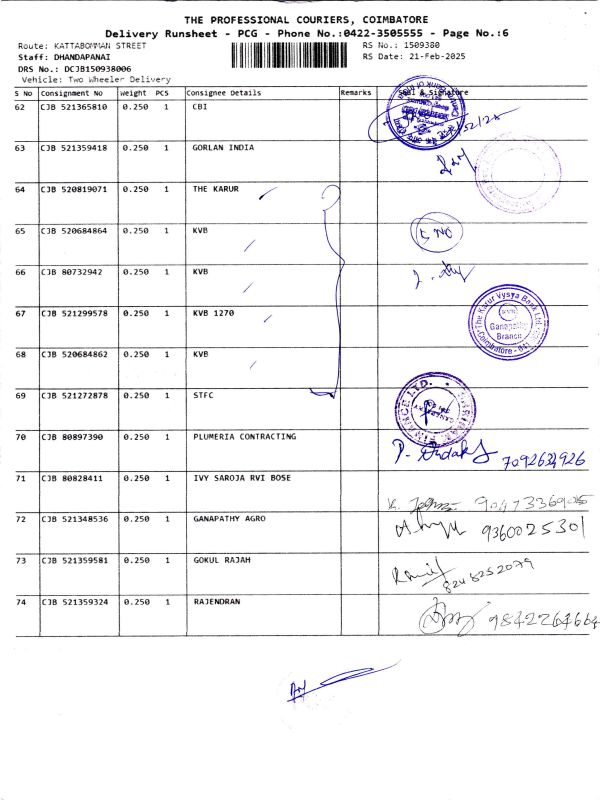 THE PROFESSIONAL COURIERS, COIMBATORE
Delivery Runsheet - PCG - Phone No.:0422-3505555 - Page No.:6
Route: KATTABOMMAN STREET
RS No.: 1509380
Staff: DHANDAPANAI
RS Date: 21-Feb-2025
DRS No.: DCJB150938006
Vehicle: Two Wheeler Delivery
S No Consignment No Weight PCS Consignee Details Remarks Seal & Signature
62 CJB 521365810 0.250 1 CBI
63 CJB 521359418 0.250 1 GORLAN INDIA
64 CJB 520819071 0.250 1 THE KARUR
65 CJB 520684864 0.250 1 KVB
5 NO
66 CJB 80732942 0.250 1 KVB
67 CJB 521299578 0.250 1 KVB 1270
The Karur Vysya Bank Ltd.
KVB
Ganapathy
Branch
Coimbatore - 641
68 CJB 520684862 0.250 1 KVB
69 CJB 521272878 0.250 1 STFC
FINANCE LTD.
70 CJB 80897390 0.250 1 PLUMERIA CONTRACTING
7092634926
71 CJB 80828411 0.250 1 IVY SAROJA RVI BOSE
72 CJB 521348536 0.250 1 GANAPATHY AGRO
9360025301
73 CJB 521359581 0.250 1 GOKUL RAJAH
8248252079
74 CJB 521359324 0.250 1 RAJENDRAN
9842264664